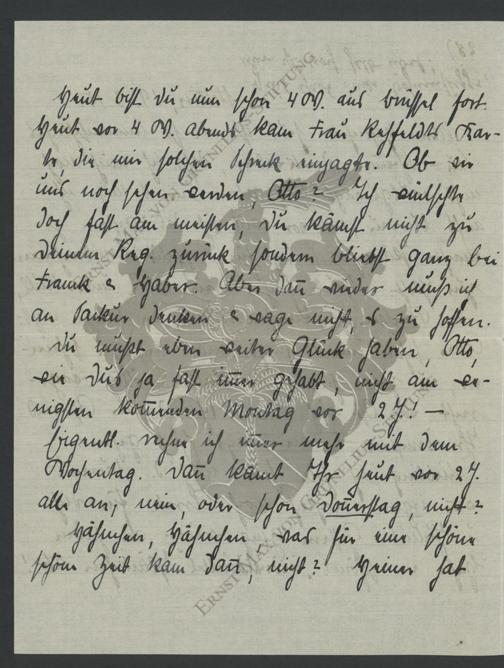 Heut bist Du nun schon 4 W. aus Brüssel fort.
Heut vor 4 W. abends kam Frau Rehfeldts Kar-
te, die mir solchen Schreck einjagte. Ob wir
uns noch sehen werden, Otto? Ich wünschte
doch fast am meisten, Du kämst nicht zu
Deinem Reg. zurück sondern bliebst ganz bei
Franck & Haber. Aber dan̄ wieder muss ich
an denken & wage nicht, es zu hoffen.
Du musst eben weiter Glück haben, Otto,
wie Dus ja fast im̄er gehabt, nicht am we-
nigsten kom̄enden Montag vor 2 J.! —
Eigentl. rechne ich im̄er mehr mit dem
Wochentag. Dan̄ kämt Ihr heut vor 2 J.
alle an, nein, oder schon Don̄erstag, nicht?
Hähnchen, Hähnchen, was für eine schöne
schöne Zeit kam dan̄, nicht? Heiner hat
ERNST MAX VON GRUNELIUS-STIFTUNG